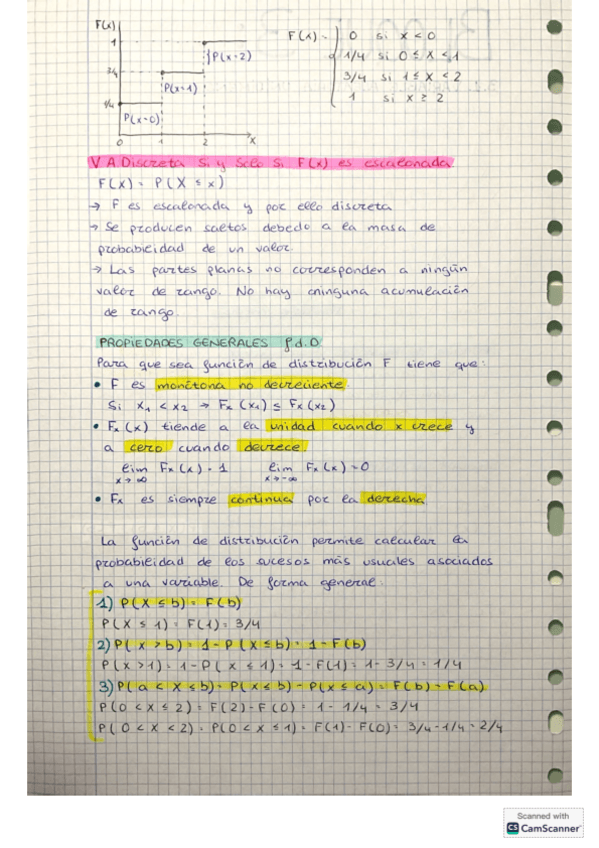 F(x)
1
3/4
1/4
P(x=2)
P(x=1)
P(x=0)
0 1 2 x
F(x) = 0 si x < 0
1/4 si 0 ≤ x < 1
3/4 si 1 ≤ x < 2
1 si x ≥ 2
V A Discreta si y solo si F(x) es escalonada
F(x) = P(X ≤ x)
→ F es escalonada y por ello discreta
→ Se producen saltos debedo a la masa de
probabilidad de un valor.
→ Las partes planas no corresponden a ningún
valor de rango. No hay cninguna acumulación
de rango.
PROPIEDADES GENERALES f d.D
Para que sea función de distribución F tiene que:
• F es monótona no decreciente.
Si x₁ < x₂ → Fx (x₁) ≤ Fx (x₂)
• Fx (x) tiende a la unidad cuando x crece y
a cero cuando decrece.
lim Fx (x) = 1 lim Fx (x) = 0
x→∞ x→-∞
• Fx es siempre continua por la derecha.
La función de distribución permite calcular la
probabilidad de los sucesos más usuales asociados
a una variable. De forma general:
1) P(X ≤ b) = F(b)
P(X ≤ 1) = F(1) = 3/4
2) P(x > b) = 1 - P(X ≤ b) = 1 - F(b)
P(x > 1) = 1 - P(x ≤ 1) = 1 - F(1) = 1 - 3/4 = 1/4
3) P(a < X ≤ b) = P(x ≤ b) - P(x ≤ a) = F(b) - F(a)
P(0 < x ≤ 2) = F(2) - F(0) = 1 - 1/4 = 3/4
P(0 < X < 2) = P(0 < X ≤ 1) = F(1) - F(0) = 3/4 - 1/4 = 2/4
Scanned with
CS CamScanner